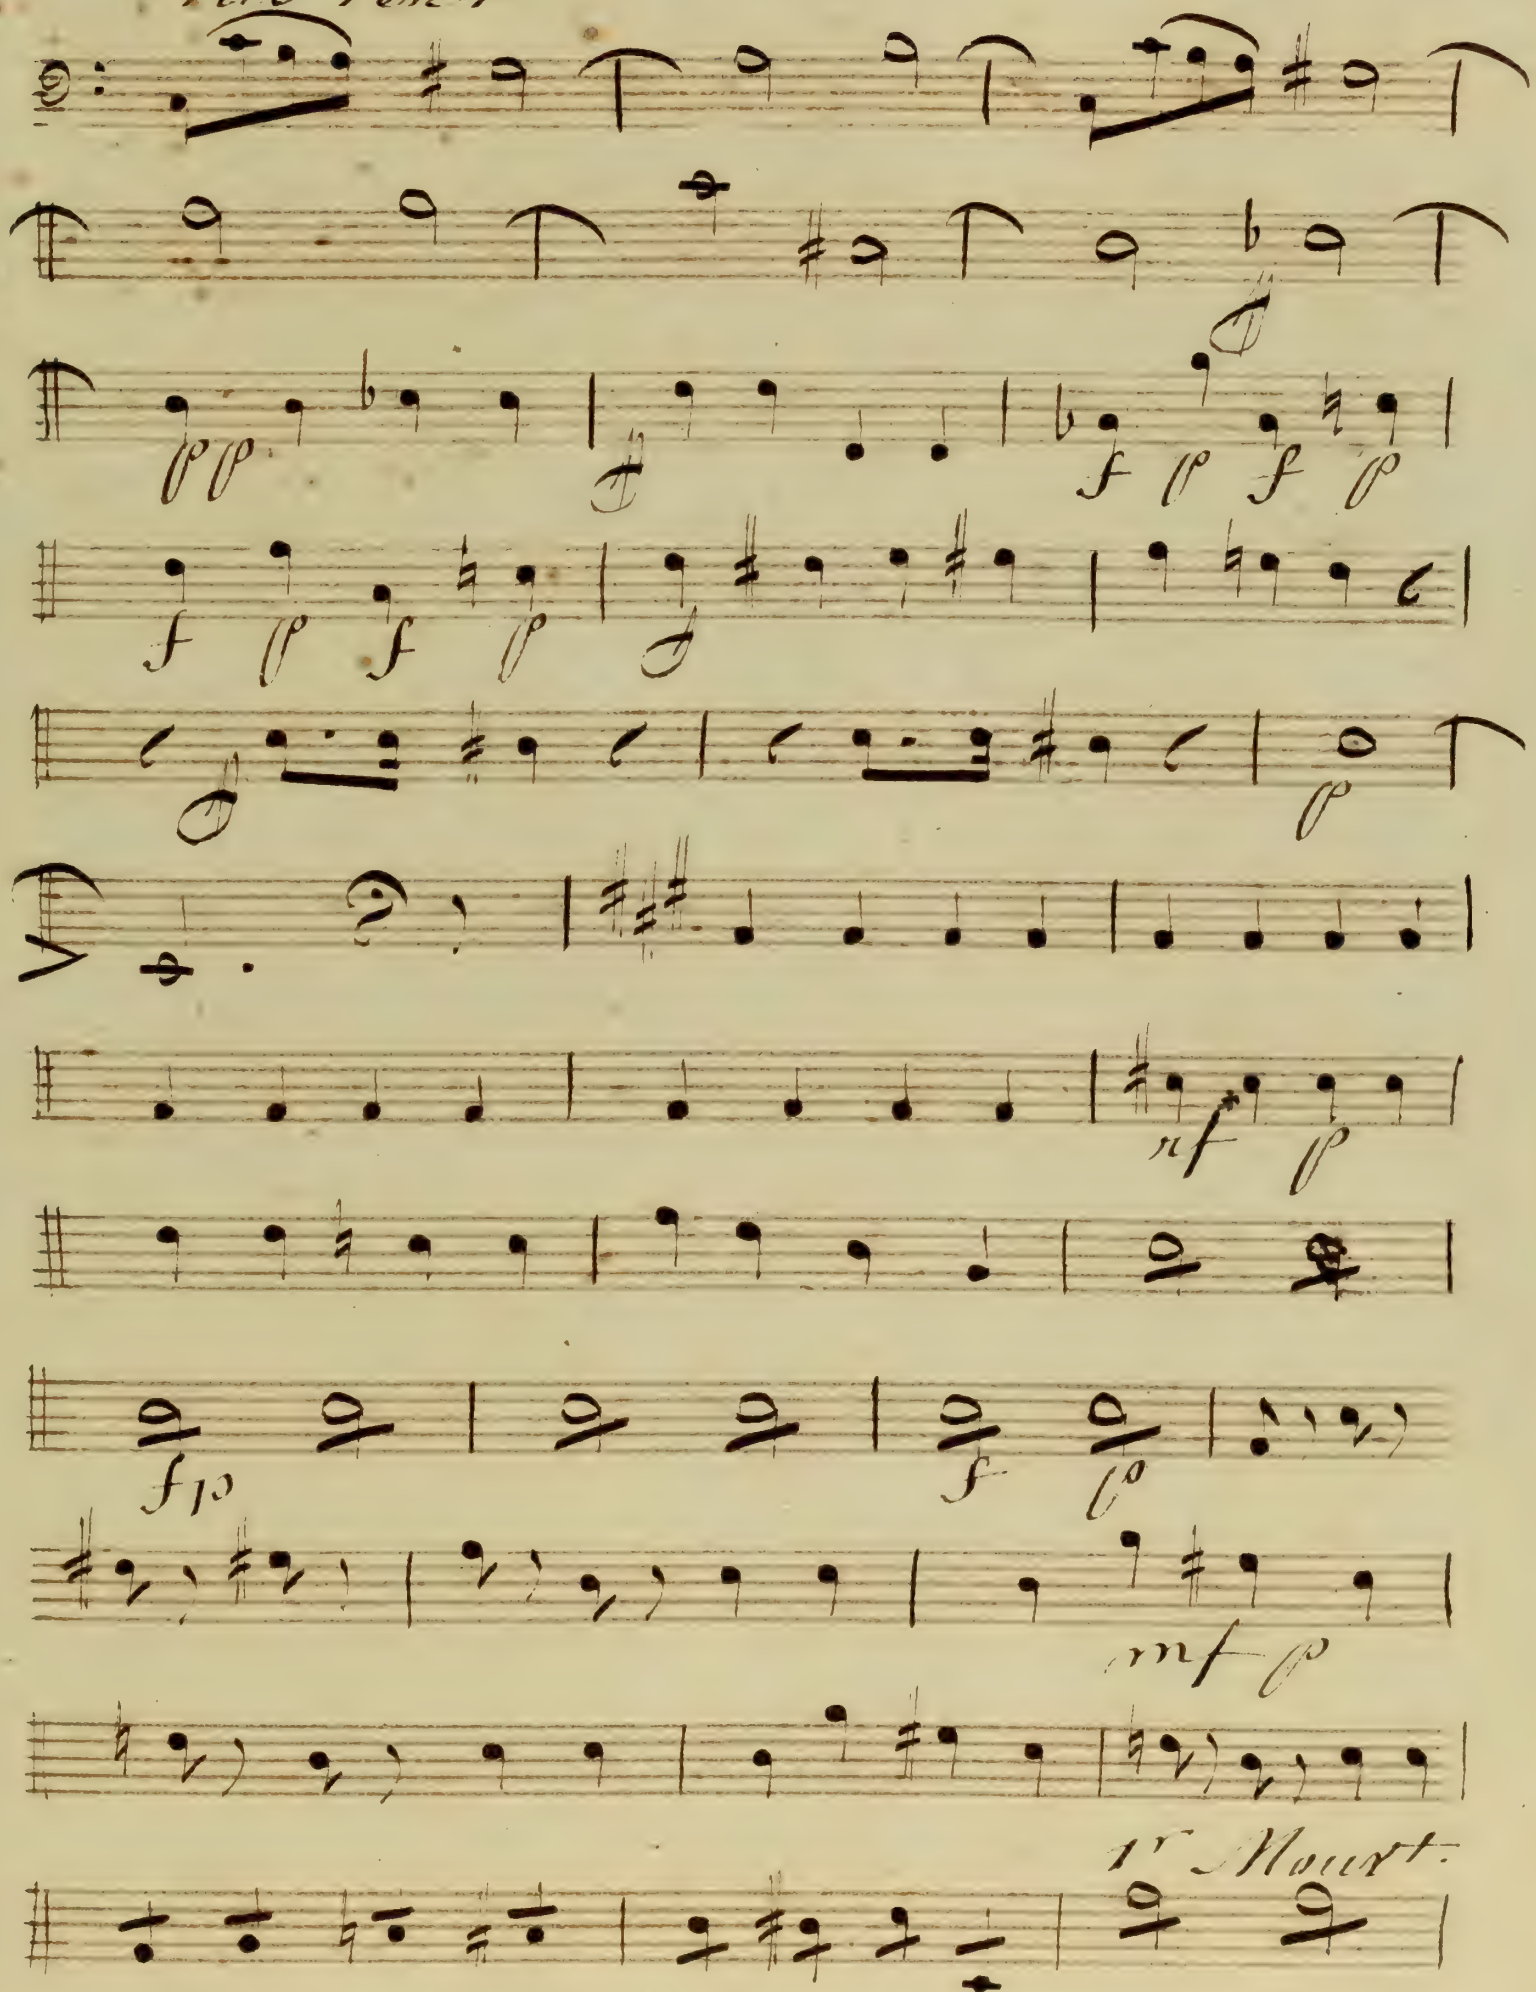 pp
f p f p
f p f p
p
rf p
fp f p
mf p
1r Mouvt.